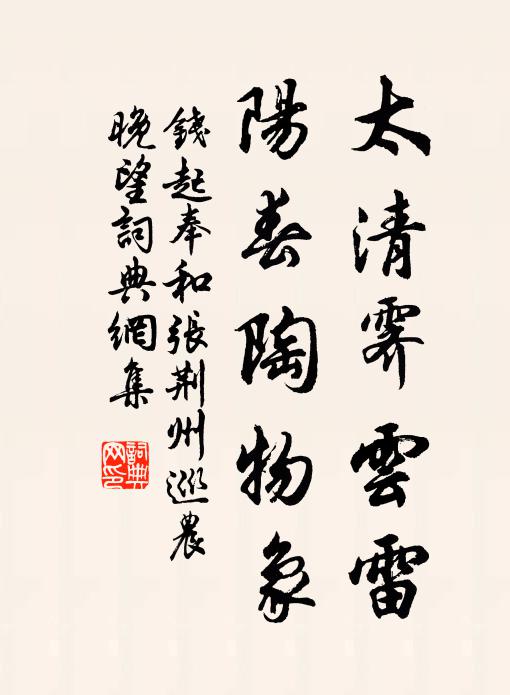 太清霽雲雷
陽春陶物象
錢起奉和張荆州巡農
晚望詞典網集
詞典
网印